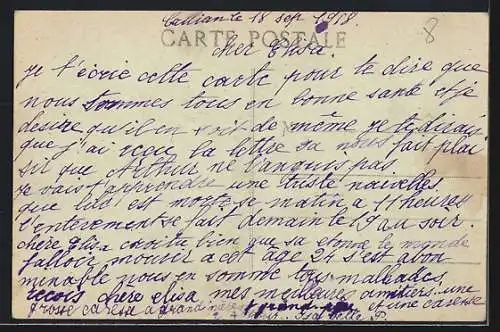 Calliante 18 sep 1918
8
CARTE POSTALE
cher Elisa.
je t'écrie cette carte pour te dire que
nous sommes tous en bonne santé et je
desire qu'il en soit de même je te dirais
que j'ai reçu la lettre sa nous fait plai
sir que Arthur ne
je vais t'apprendre une triste naivelles.
que est morte se matin a 11 heures
l'enterement se fait demain le 19 au soir.
chère élisa croit bien que sa etonne le monde
falloir mourir a cet age 24 s'est abon
minable nous en somme tous mallades
recois chère elisa mes meilleures amitiers une
grosse caresa a grand mère et une caresse